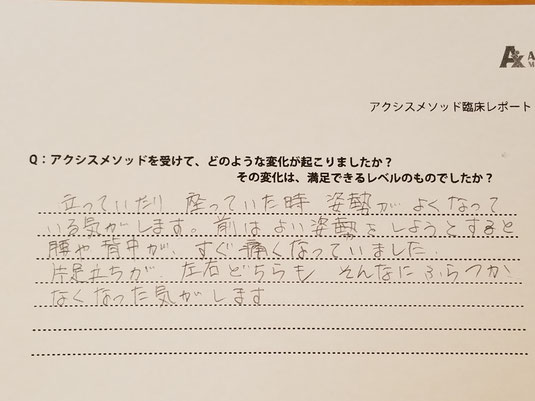 アクシスメソッド臨床レポート
Q：アクシスメソッドを受けて、どのような変化が起こりましたか？
その変化は、満足できるレベルのものでしたか？
立っていたり 座っていた時 姿勢が よくなって
いる気がします。前は よい姿勢を しようとすると
腰や 背中が、すぐ痛くなっていました.
片足立ちが、左右どちらも そんなに ふらつか
なくなった気がします